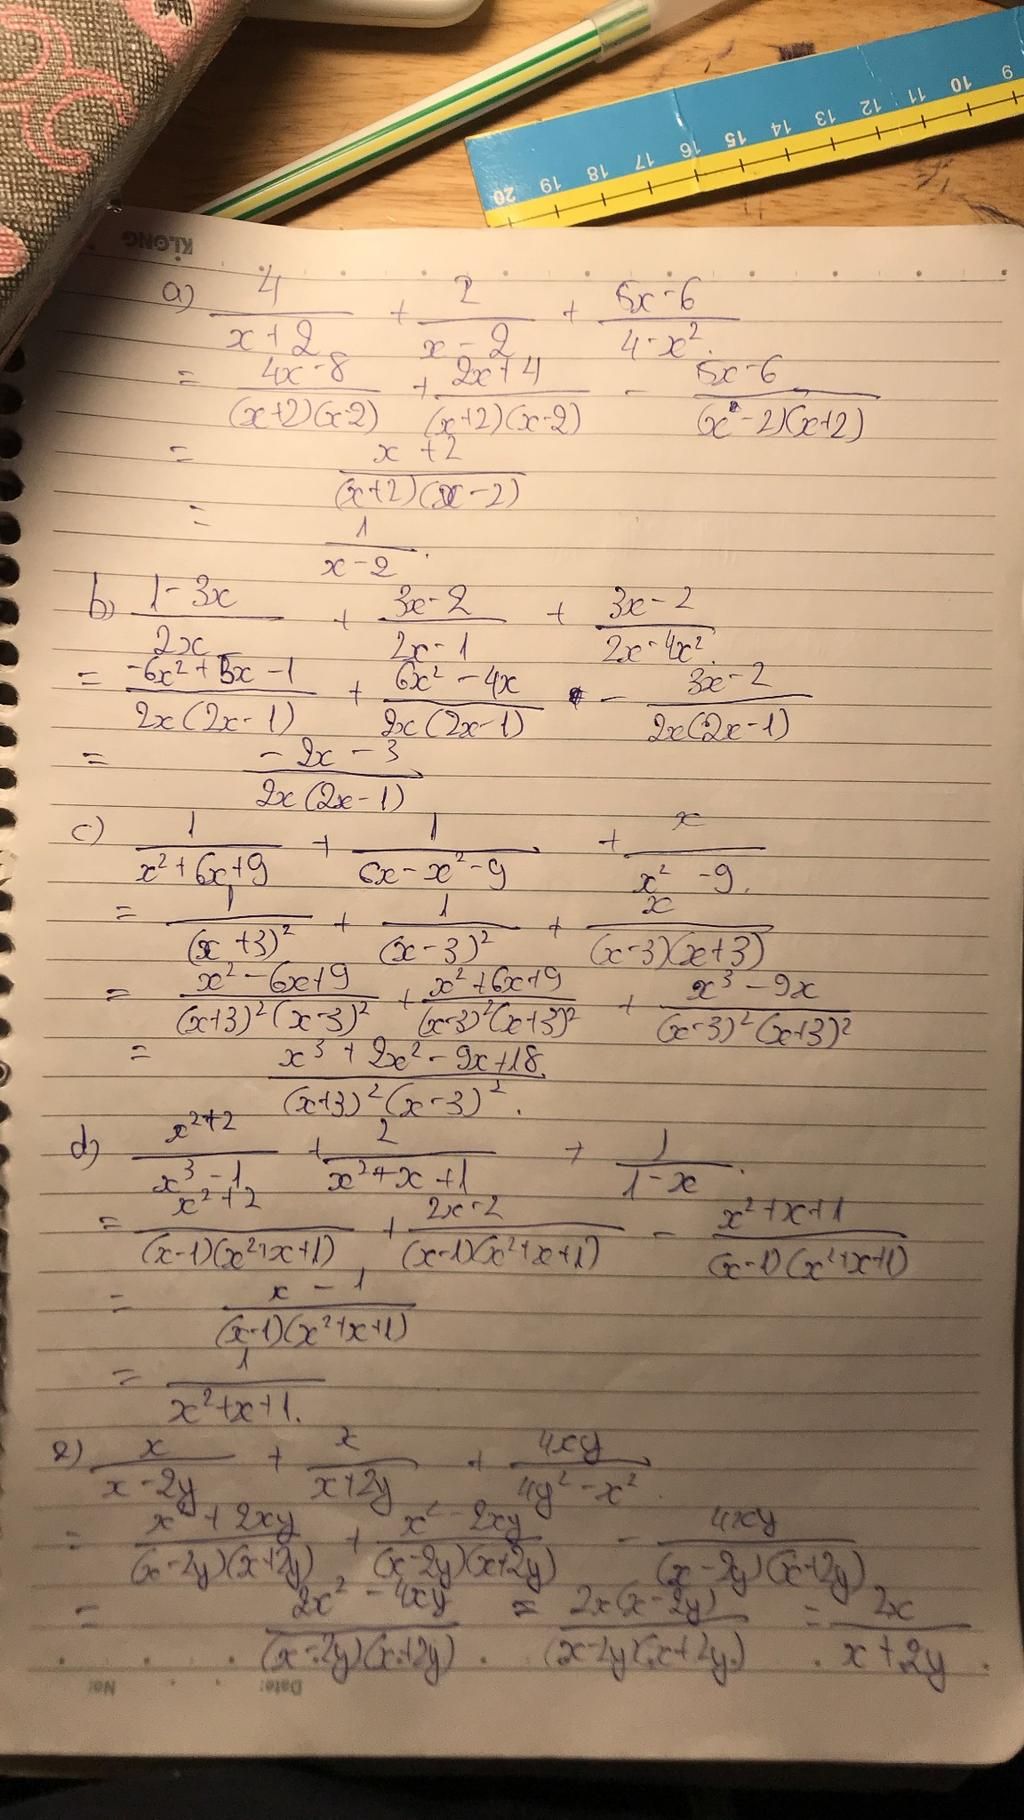 20 19 18 17 16 15 14 13 12 11 10 9
KLONG
a) 4/(x+2) + 2/(x-2) + (5x-6)/(4-x²).
= (4x-8)/((x+2)(x-2)) + (2x+4)/((x+2)(x-2)) - (5x-6)/((x-2)(x+2))
= (x+2)/((x+2)(x-2))
= 1/(x-2).
b) (1-3x)/(2x) + (3x-2)/(2x-1) + (3x-2)/(2x-4x²).
= (-6x²+5x-1)/(2x(2x-1)) + (6x²-4x)/(2x(2x-1)) - (3x-2)/(2x(2x-1))
= (-2x-3)/(2x(2x-1))
c) 1/(x²+6x+9) + 1/(6x-x²-9) + x/(x²-9).
= 1/((x+3)²) + 1/((x-3)²) + x/((x-3)(x+3))
= (x²-6x+9)/((x+3)²(x-3)²) + (x²+6x+9)/((x-3)²(x+3)²) + (x³-9x)/((x-3)²(x+3)²)
= (x³+2x²-9x+18)/((x+3)²(x-3)²).
d) (x²+2)/(x³-1) + 2/(x²+x+1) + 1/(1-x).
= (x²+2)/((x-1)(x²+x+1)) + (2x-2)/((x-1)(x²+x+1)) - (x²+x+1)/((x-1)(x²+x+1))
= (x-1)/((x-1)(x²+x+1))
= 1/(x²+x+1).
e) x/(x-2y) + x/(x+2y) + 4xy/(4y²-x²).
= (x²+2xy)/((x-2y)(x+2y)) + (x²-2xy)/((x-2y)(x+2y)) - 4xy/((x-2y)(x+2y))
= (2x²-4xy)/((x-2y)(x+2y)) = 2x(x-2y)/((x-2y)(x+2y)) = 2x/(x+2y).
Date: No: